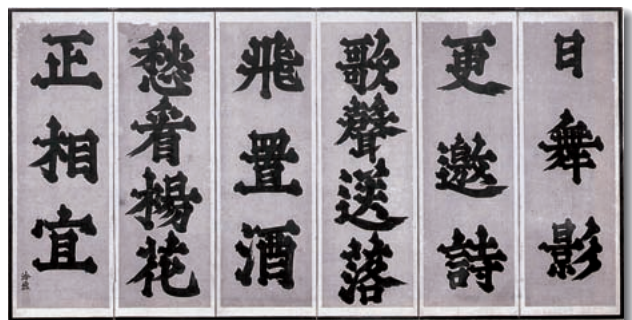 日舞影
更邀詩
歌聲送落
飛置酒
愁看楊花
正相宜